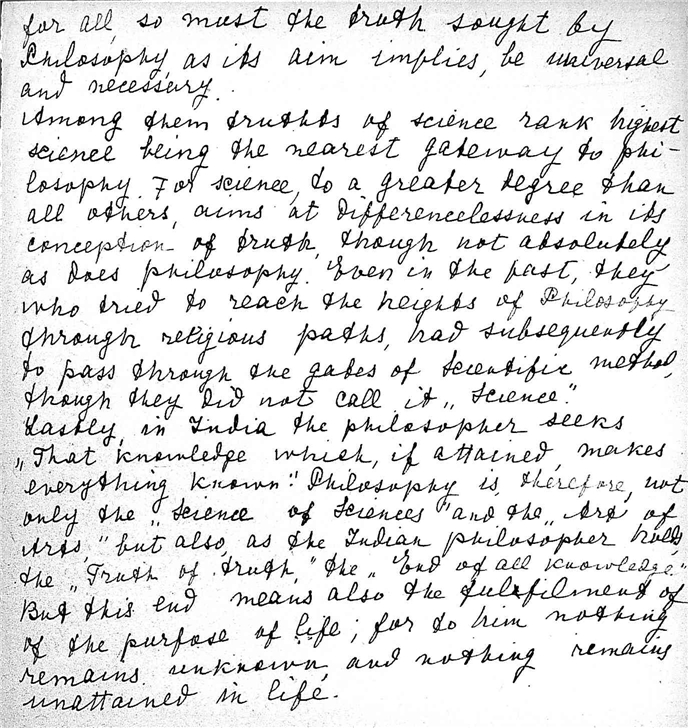 for all, so must the truth sought by
Philosophy, as its aim implies, be universal
and necessary.
Among them truthts of science rank highest
science being the nearest gateway to phi-
losophy. For science, to a greater degree than
all others, aims at differencelessness in its
conception of truth, though not absolutely
as does philosophy. Even in the past, they
who tried to reach the heights of Philosophy
through religious paths, had subsequently
to pass through the gates of Scientific method,
though they did not call it „Science".
Lastly, in India the philosopher seeks
„That knowledge which, if attained, makes
everything known". Philosophy is, therefore, not
only the „Science of Sciences" and the „Art of
Arts," but also, as the Indian philosopher holds
the „Truth of truth," the „End of all knowledge."
But this end means also the fulfilment of
of the purpose of life; for to him nothing
remains unknown, and nothing remains
unattained in life.